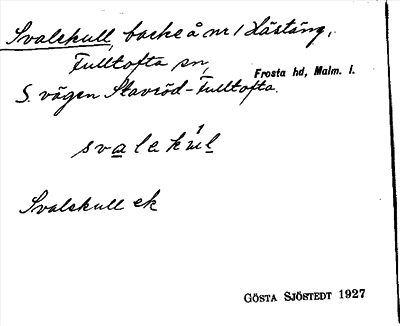 Svalskull, backe å nr 1 Hästäng,
Fulltofta sn,
Frosta hd, Malm. l.
S. vägen Stavröd-Fulltofta.
Svalskull ek
GÖSTA SJÖSTEDT 1927